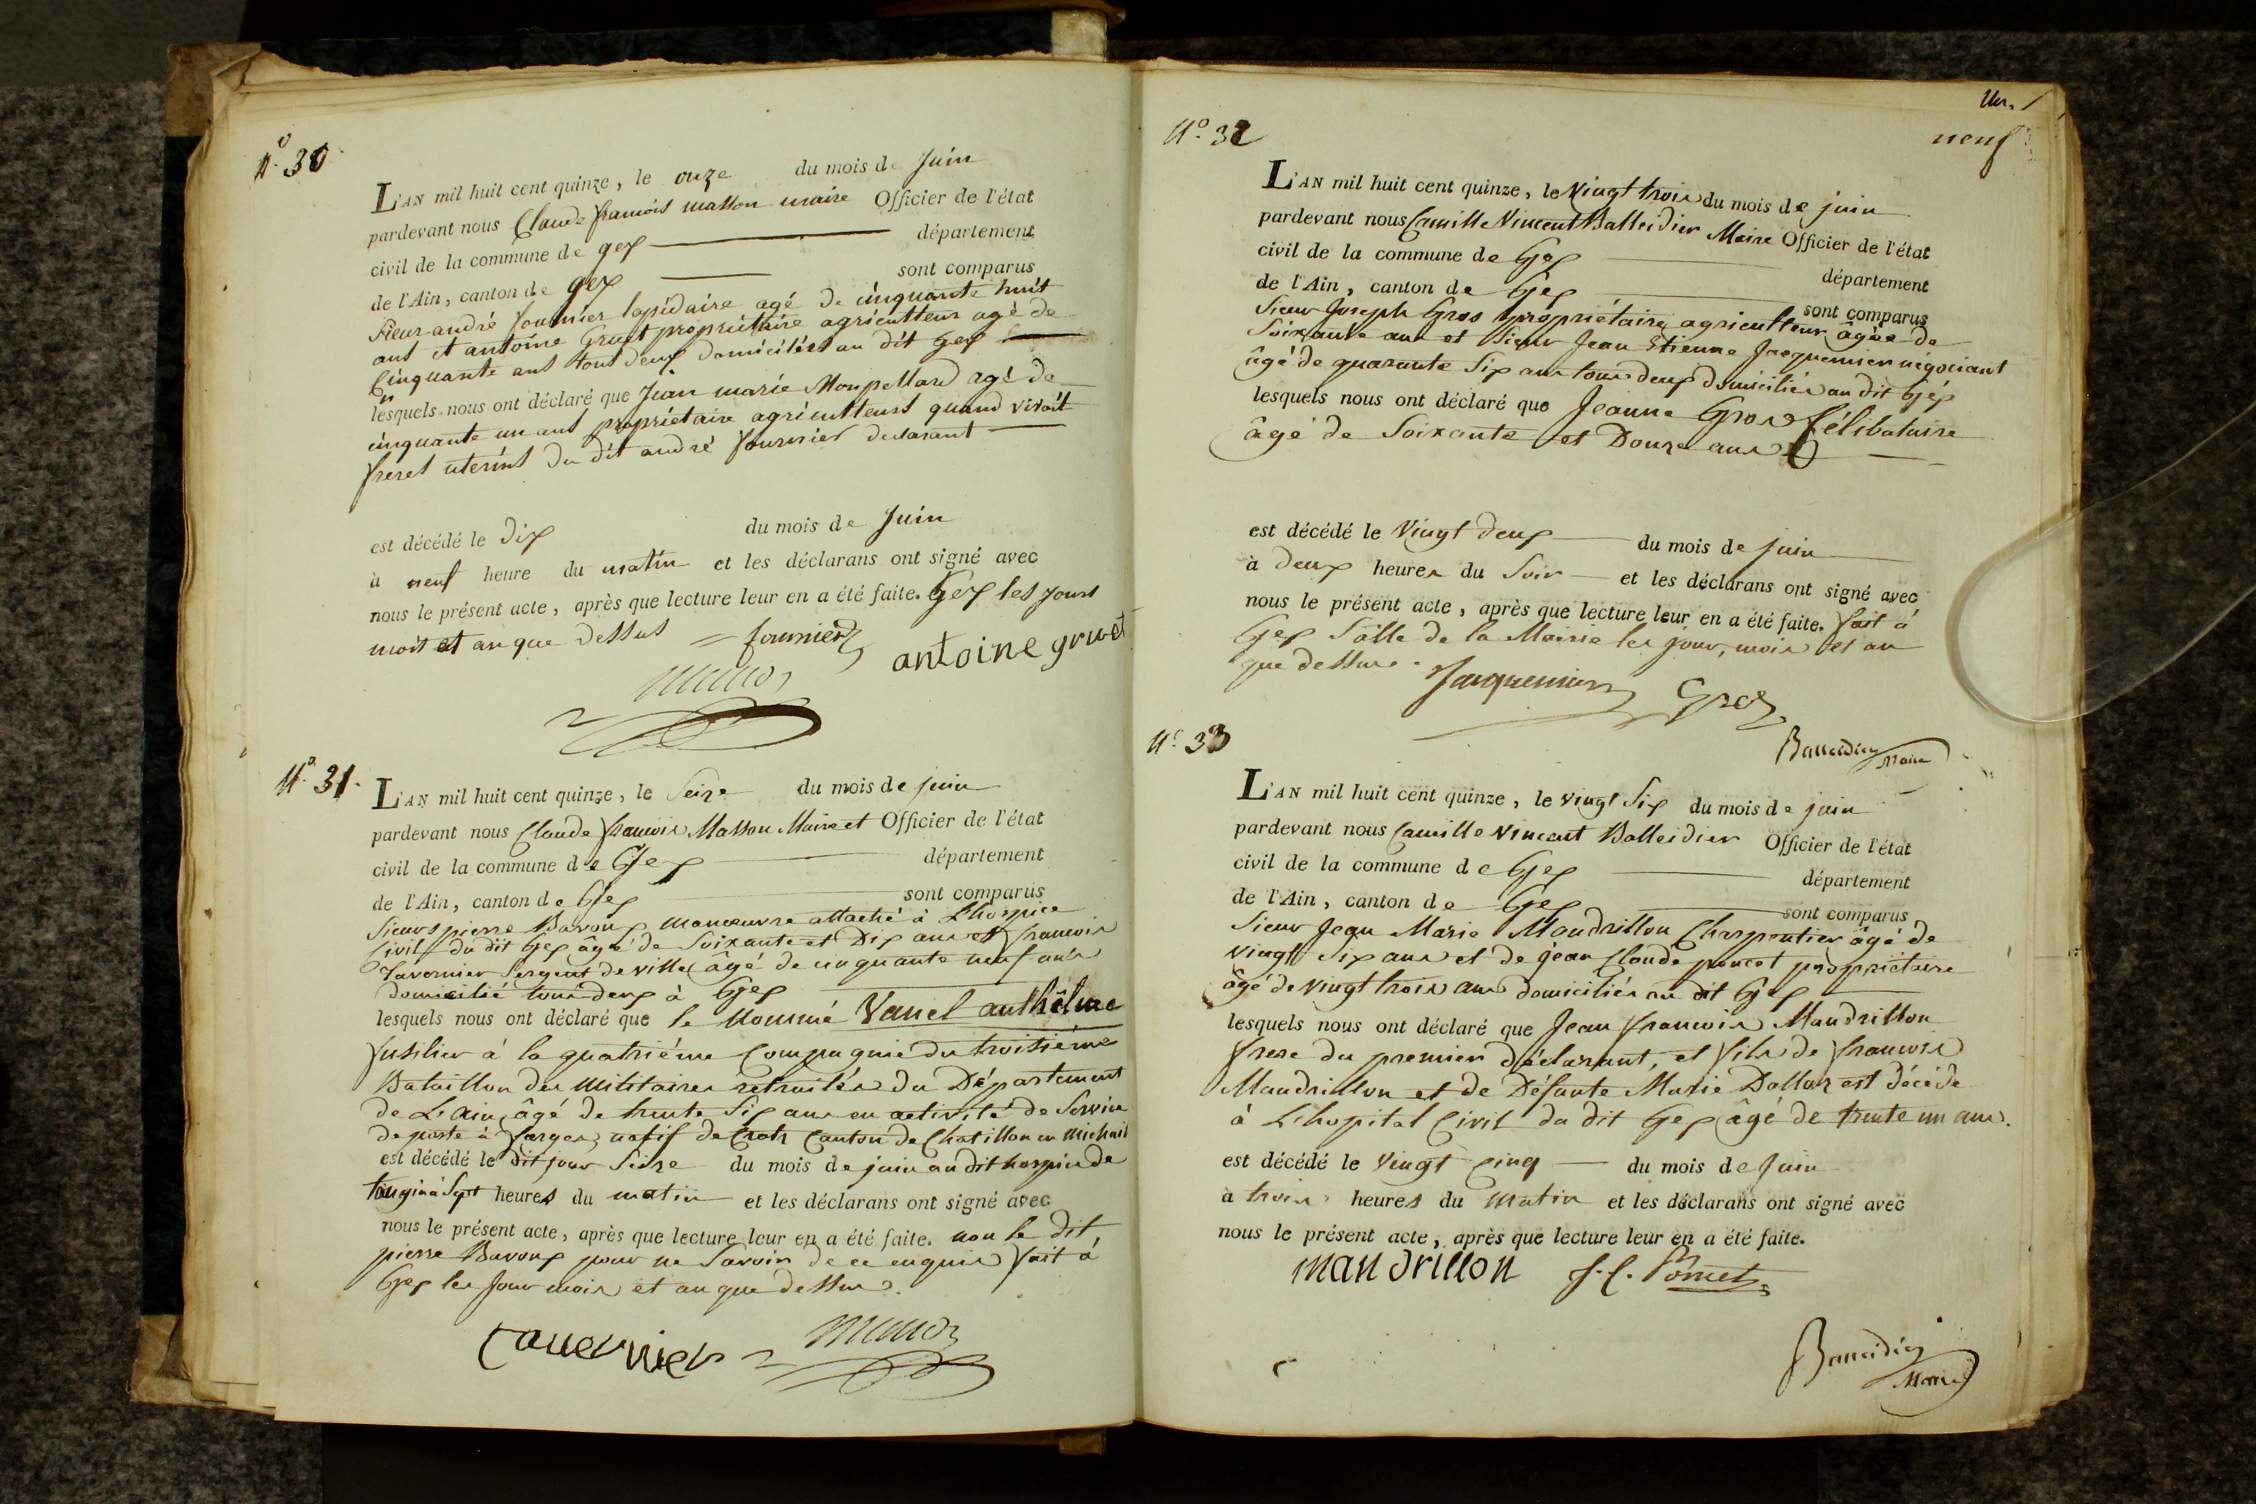 N.º 30
L'AN mil huit cent quinze, le onze du mois de Juin
pardevant nous Claude francois masson maire Officier de l'état
civil de la commune de gex département
de l'Ain, canton de gex sont comparus
sieur andré fournier lapidaire agé de cinquante huit
ans et antoine Gruet propriétaire agriculteur agé de
Cinquante ans tous deux domiciliés au dit Gex
lesquels nous ont déclaré que Jean marie Monpellard agé de
cinquante un ans propriétaire agriculteurs quand vivoit
freres uterins du dit andré fournier declarant
est décédé le dix du mois de Juin
à neuf heure du matin et les déclarans ont signé avec
nous le présent acte, après que lecture leur en a été faite. Gex les jours
mois et an que dessus fournier
antoine gruet
N.º 31.
L'AN mil huit cent quinze, le Seize du mois de juin
pardevant nous Claude francois Masson Maire et Officier de l'état
civil de la commune de Gex département
de l'Ain, canton de Gex sont comparus
Sieurs pierre Bavoux manoeuvre attaché à L'hospice
Civil du dit Gex âgé de Soixante et Dix ans et francois
Tavernier Sergent de ville âgé de cinquante neuf ans
domicilié tous deux à Gex
lesquels nous ont déclaré que le Nommé Vanel anthêlme
fusilier à la quatriéme Compagnie du troisiéme
Bataillon des Militaires retraités du Département
de L'ain, âgé de trente Six ans en activité de Service
de poste à farges, natif de Canton de Chatillon en Michail
est décédé le dit jour Seize du mois de juin au dit hospice de
tougin à Sept heures du matin et les déclarans ont signé avec
nous le présent acte, après que lecture leur en a été faite. non le dit
pierre Bavoux pour ne Savoir de ce enquis fait à
Gex les Jour mois et an que dessus.
tavernier
N.º 32
neuf
L'AN mil huit cent quinze, le Vingt trois du mois de juin
pardevant nous Camille Vincent Balleidier Maire Officier de l'état
civil de la commune de Gex département
de l'Ain, canton de Gex sont comparus
Sieur Joseph Gros propriétaire agriculteur âgée de
Soixante ans et Sieur Jean Etienne Jacquemier négociant
âgé de quarante Six ans tous deux domiciliés au dit Gex
lesquels nous ont déclaré que Jeanne Gros Célibataire
âgé de Soixante et Douze ans
est décédé le Vingt deux du mois de juin
à Deux heures du Soir et les déclarans ont signé avec
nous le présent acte, après que lecture leur en a été faite. fait à
Gex Salle de la Mairie les jour, mois et an
que dessus. Jacquemier Gros
Balleidier
Maire
N.º 33
L'AN mil huit cent quinze, le vingt Six du mois de juin
pardevant nous Camille Vincent Balleidier Officier de l'état
civil de la commune de Gex département
de l'Ain, canton de Gex sont comparus
Sieur Jean Marie Mandrillon Charpentier âgé de
Vingt Six ans et de jean Claude poncet propriétaire
âgé de vingt trois ans domiciliés au dit Gex
lesquels nous ont déclaré que Jean francois Mandrillon
frere du premier déclarant, et fils de francois
Mandrillon et de Défunte Marie Dalloz est décédé
à L'hopital Civil du dit Gex âgé de trente un ans.
est décédé le Vingt Cinq du mois de Juin
à trois heures du Matin et les déclarans ont signé avec
nous le présent acte, après que lecture leur en a été faite.
mandrillon J. C. Poncet
Balleidier
Maire